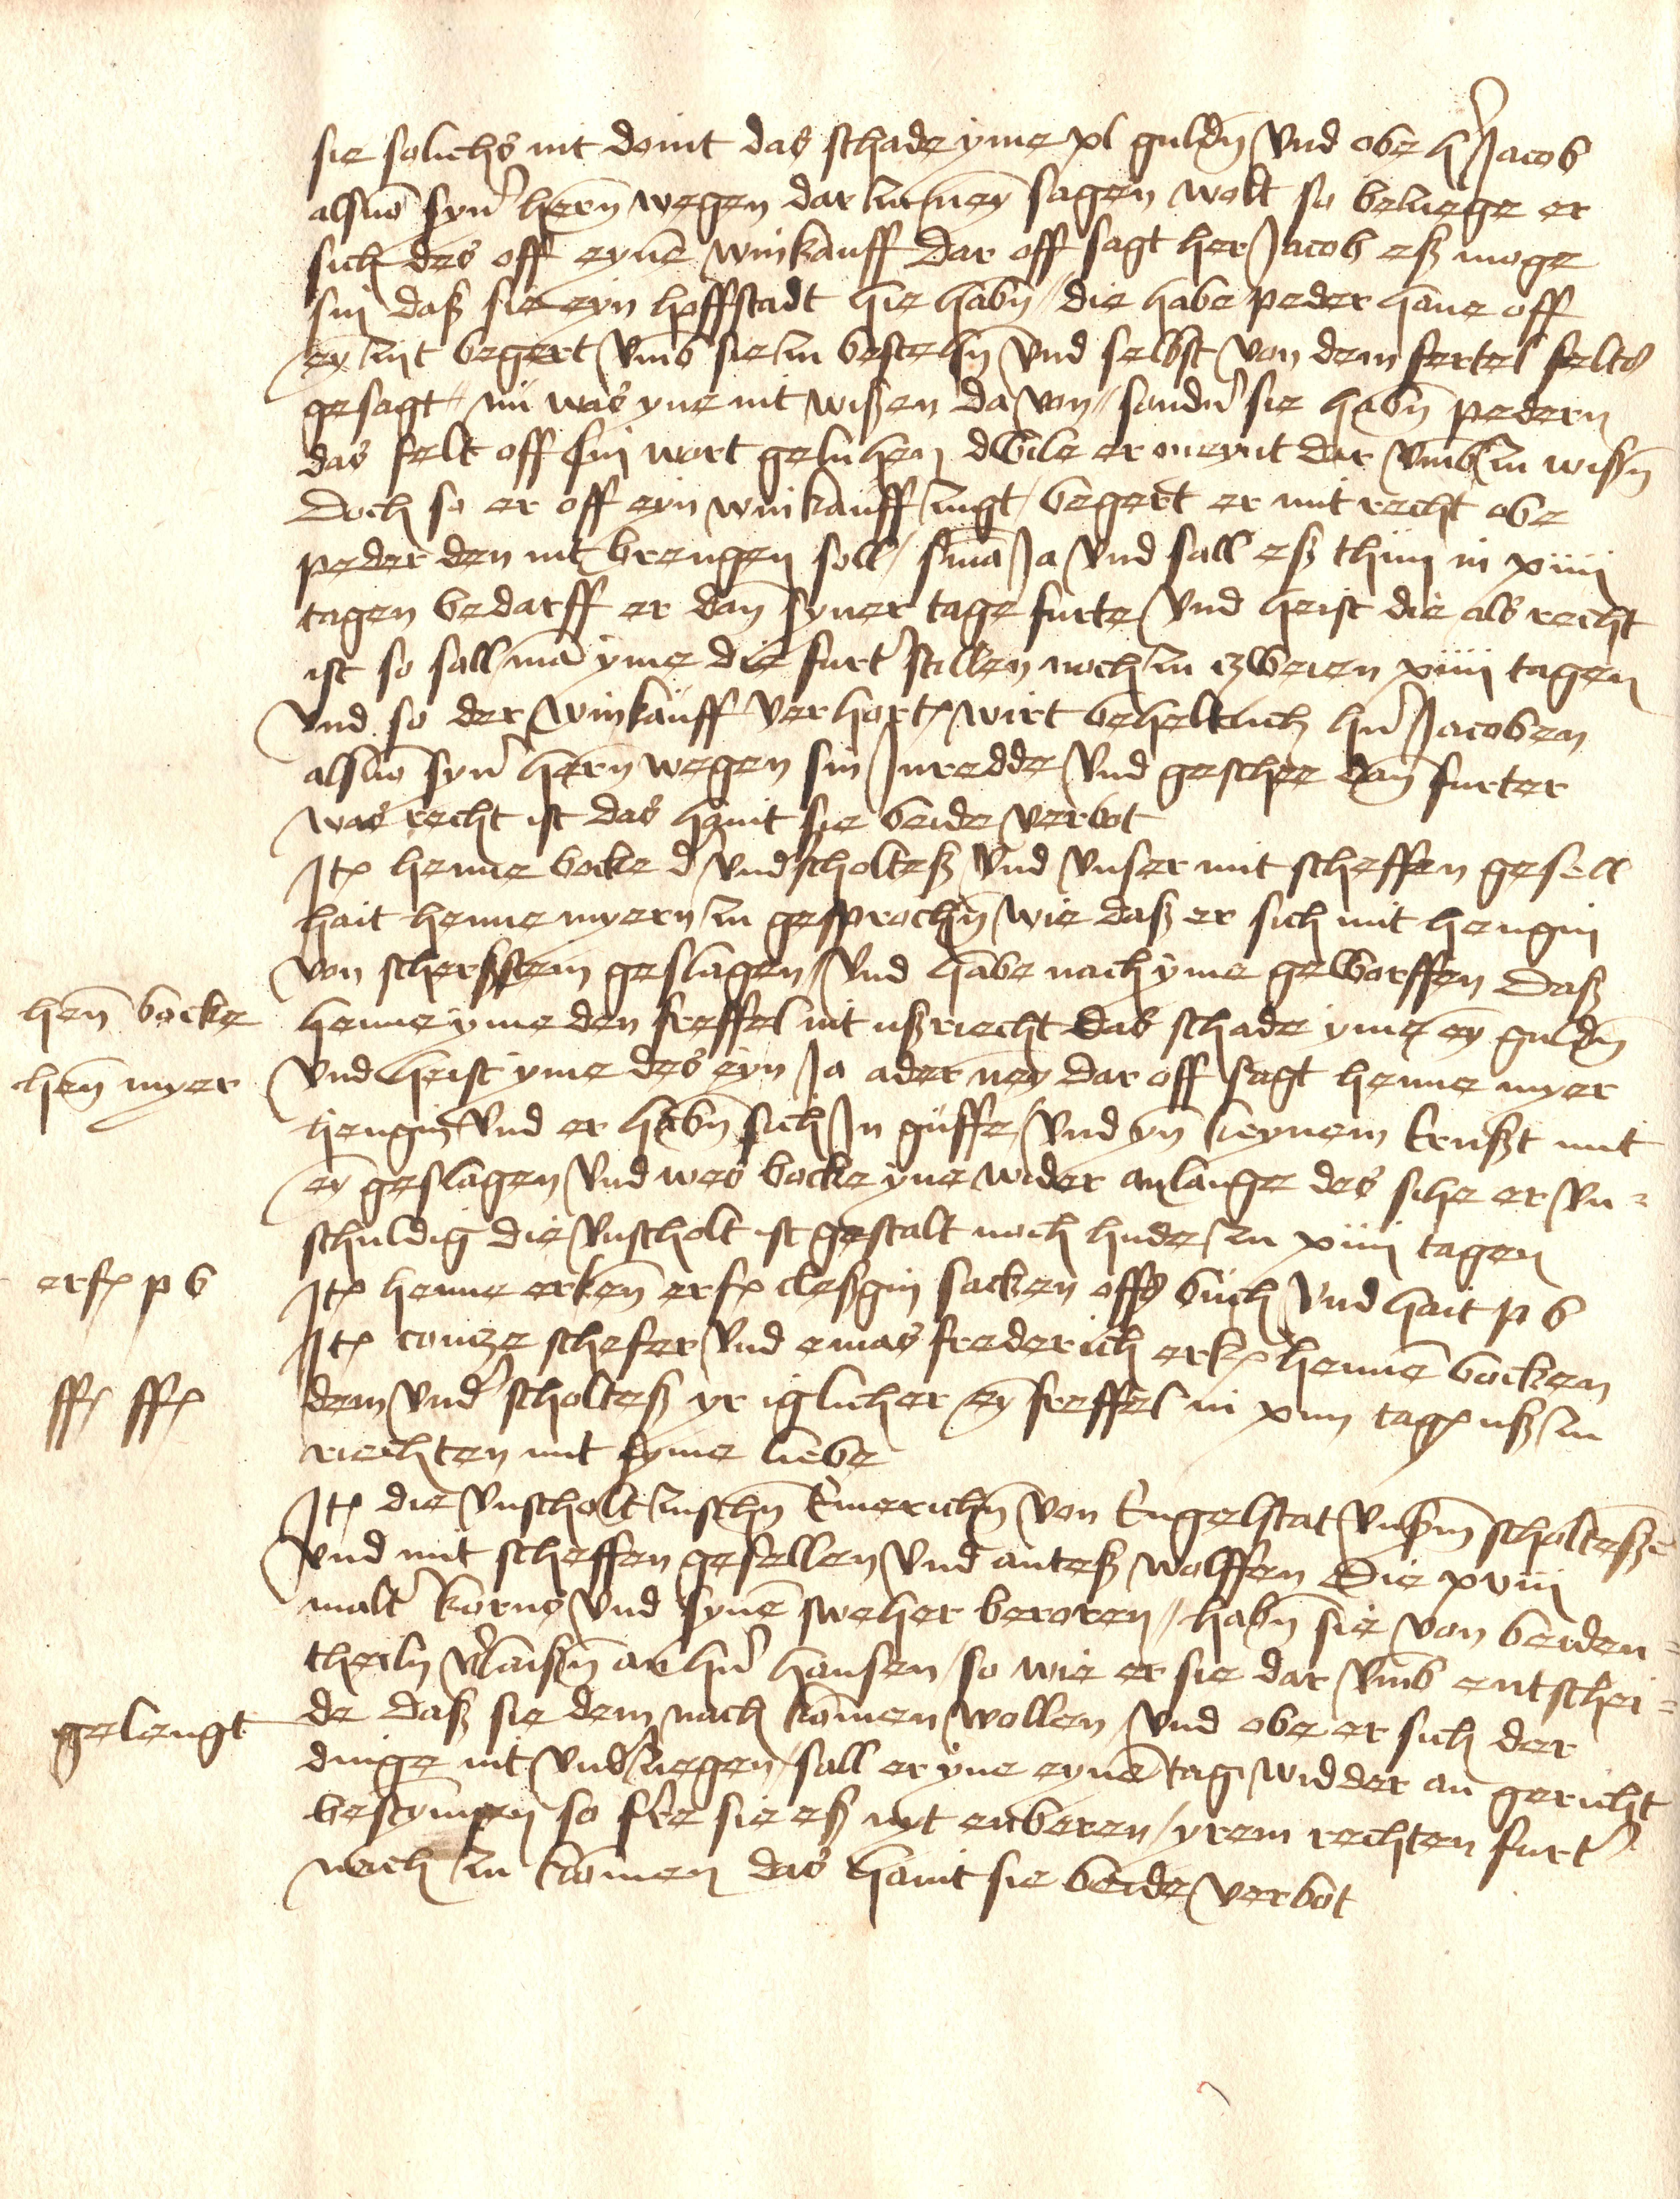 sie solichs nit domit das schade yme xl guldn̄ vnd obe h' Jacob
als vō syn' hern̄ wegen dar zu ney sagen wolt so beluege er
sich des off eynē winkauff Dar off sagt her Jacob eß moge
sin daß sie eyn hoffstadt hie habn̄ // die habe peder hane off
ey zijt begert vmb sie zu bestelln̄ vnd selbst von dem fertel felts
gesagt // nū was yne nit wißen da von // sonder sie habn̄ pedern
das felt off sin wort geluhen dwile er meynt dar vmb zu wißn̄
Doch so er off eyn winkauff zugt / begert er mit recht obe
peder den nit brengen soll / snīa Ja vnd sall eß thun in xiiij
tagen bedarff er dan̄ syner tage furte vnd heist die als recht
ist so sall mā yme die furt' stillen noch zu czweien xiiij tagen
vnd so der winkauff verhort wirt beheltlich hn̄' Jacoben
als vō syn' hern̄ wegen sin Inredde vnd geschee dan̄ furter
was recht ist das haint sie beide verbot
Itē henne bocke d' vnd'scholteß vnd vnser mit scheffen gesell
hait henne myern zu gesprochn̄ wie daß er sich mit hengin
von scherfstein geslagen / vnd habe nach yme geworffen Daß
hen̄ bocke henne yme den freffel nit ußriecht das schade yme ey guldn̄
hen̄ myer vnd heist yme des eyn Ja ader ney dar off sagt henne myer
hengin vnd er habn̄ sich In guffe / vnd yn̄ keynem Ernßt mit
ey geslagen vnd wes bocke yne wider anlange des sihe er vn =
schuldig die vnscholt ist gestalt noch hude zu xiiij tagen
erf p b Itē henne erken̄ erf cleßgin sacken offs buch vnd hait p b
Itē contze schefer vnd emas frederich erk hennē bocken
ff ff dem vnd' scholteß yr iglicher ey freffel in xiiij tag uß zu
riechten mit syme liebe
Itē die vnscholt zuschn̄ Emerichn̄ von Engelstat vnßm̄ scholteßē
vnd mit scheffen gesellen vnd anteß wolffen Die xviij
malt' korns vnd synē sweher beroren // habn̄ sie von beiden =
theiln v'laißn̄ an hn̄' hansen / so wie er sie dar vmb entschei =
gelengt de daß sie dem nach komen wollen / vnd obe er sich der
dinge nit vnd'ziegen / sall er yne eynē tag widder an gericht
bestymen so ferre sie eß nyt enberen / yrem rechten furt'
nach zu komen das haint sie beide verbot